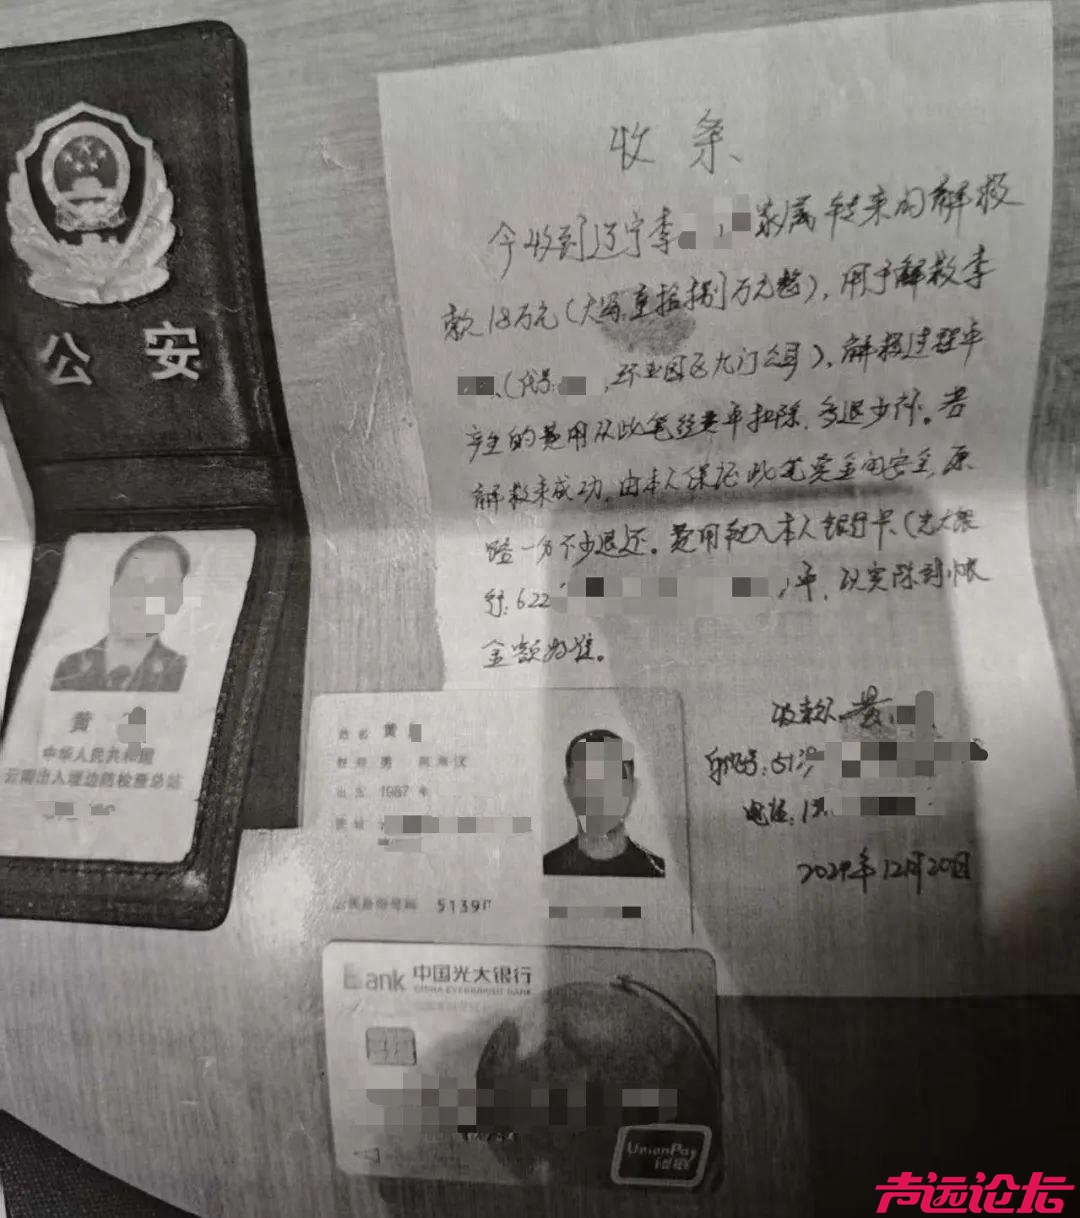 公安
黄
中华人民共和国
云南出入境边防检查总站
收条
今收到辽宁李 家属转来的解救
款18万元(大写:壹拾捌万元整),用于解救李
(代号: ,环业园区九门公司),解救过程中
产生的费用从此笔经费中扣除,多退少补。若
解救未成功,由本人保证此笔资金的安全,原
路一分不少退还。费用转入本人银行卡(光大银
行:622 )中,以实际到帐
金额为准。
收款人:黄
身份证号:513
电话:1
2024年12月20日
姓名 黄
性别 男 民族 汉
出生 1987 年
住址
公民身份号码 5139
Bank 中国光大银行
CHINA EVERBRIGHT BANK
UnionPay
银联
声远论坛